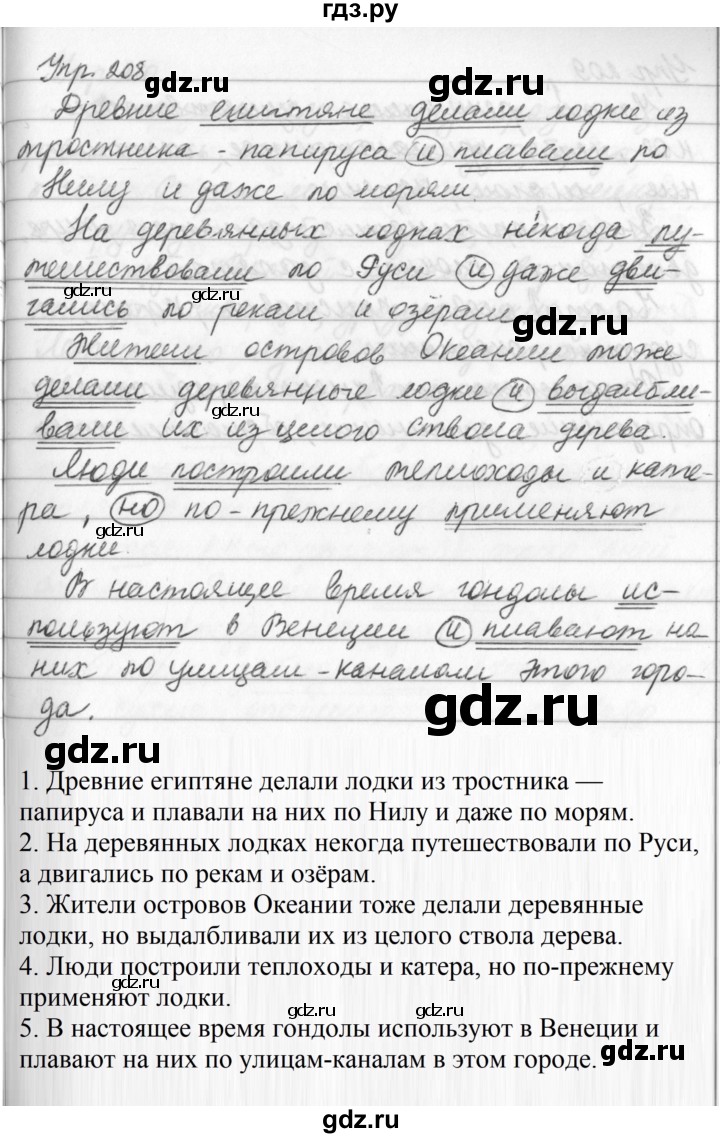 гдз.ру
Упр. 208
gdz.ru
Древние египтяне делали лодки из
тростника - папируса и плавали по
Нилу и даже по морям.
gdz.ru
gdz.ru
На деревянных лодках некогда пу-
тешествовали по Руси и даже дви-
gdz.ru
gdz.ru
гались по рекам и озёрам
gdz.ru
Жители островов Океании тоже
делали деревянные лодки и выдалбли-
gdz.ru
вали их из целого ствола дерева.
gdz.ru
Люди построили теплоходы и кате-
ра, но по-прежнему применяют
лодки.
gdz.ru
gdz.ru
В настоящее время гондолы ис-
пользуют в Венеции и плавают на
gdz.ru
них по улицам-каналам этого горо-
gdz.ru
да.
gdz.ru
1. Древние египтяне делали лодки из тростника —
папируса и плавали на них по Нилу и даже по морям.
2. На деревянных лодках некогда путешествовали по Руси,
а двигались по рекам и озёрам.
3. Жители островов Океании тоже делали деревянные
лодки, но выдалбливали их из целого ствола дерева.
4. Люди построили теплоходы и катера, но по-прежнему
gdz.ru
применяют лодки.
gdz.ru
5. В настоящее время гондолы используют в Венеции и
плавают на них по улицам-каналам в этом городе.
gdz.ru
gdz.ru